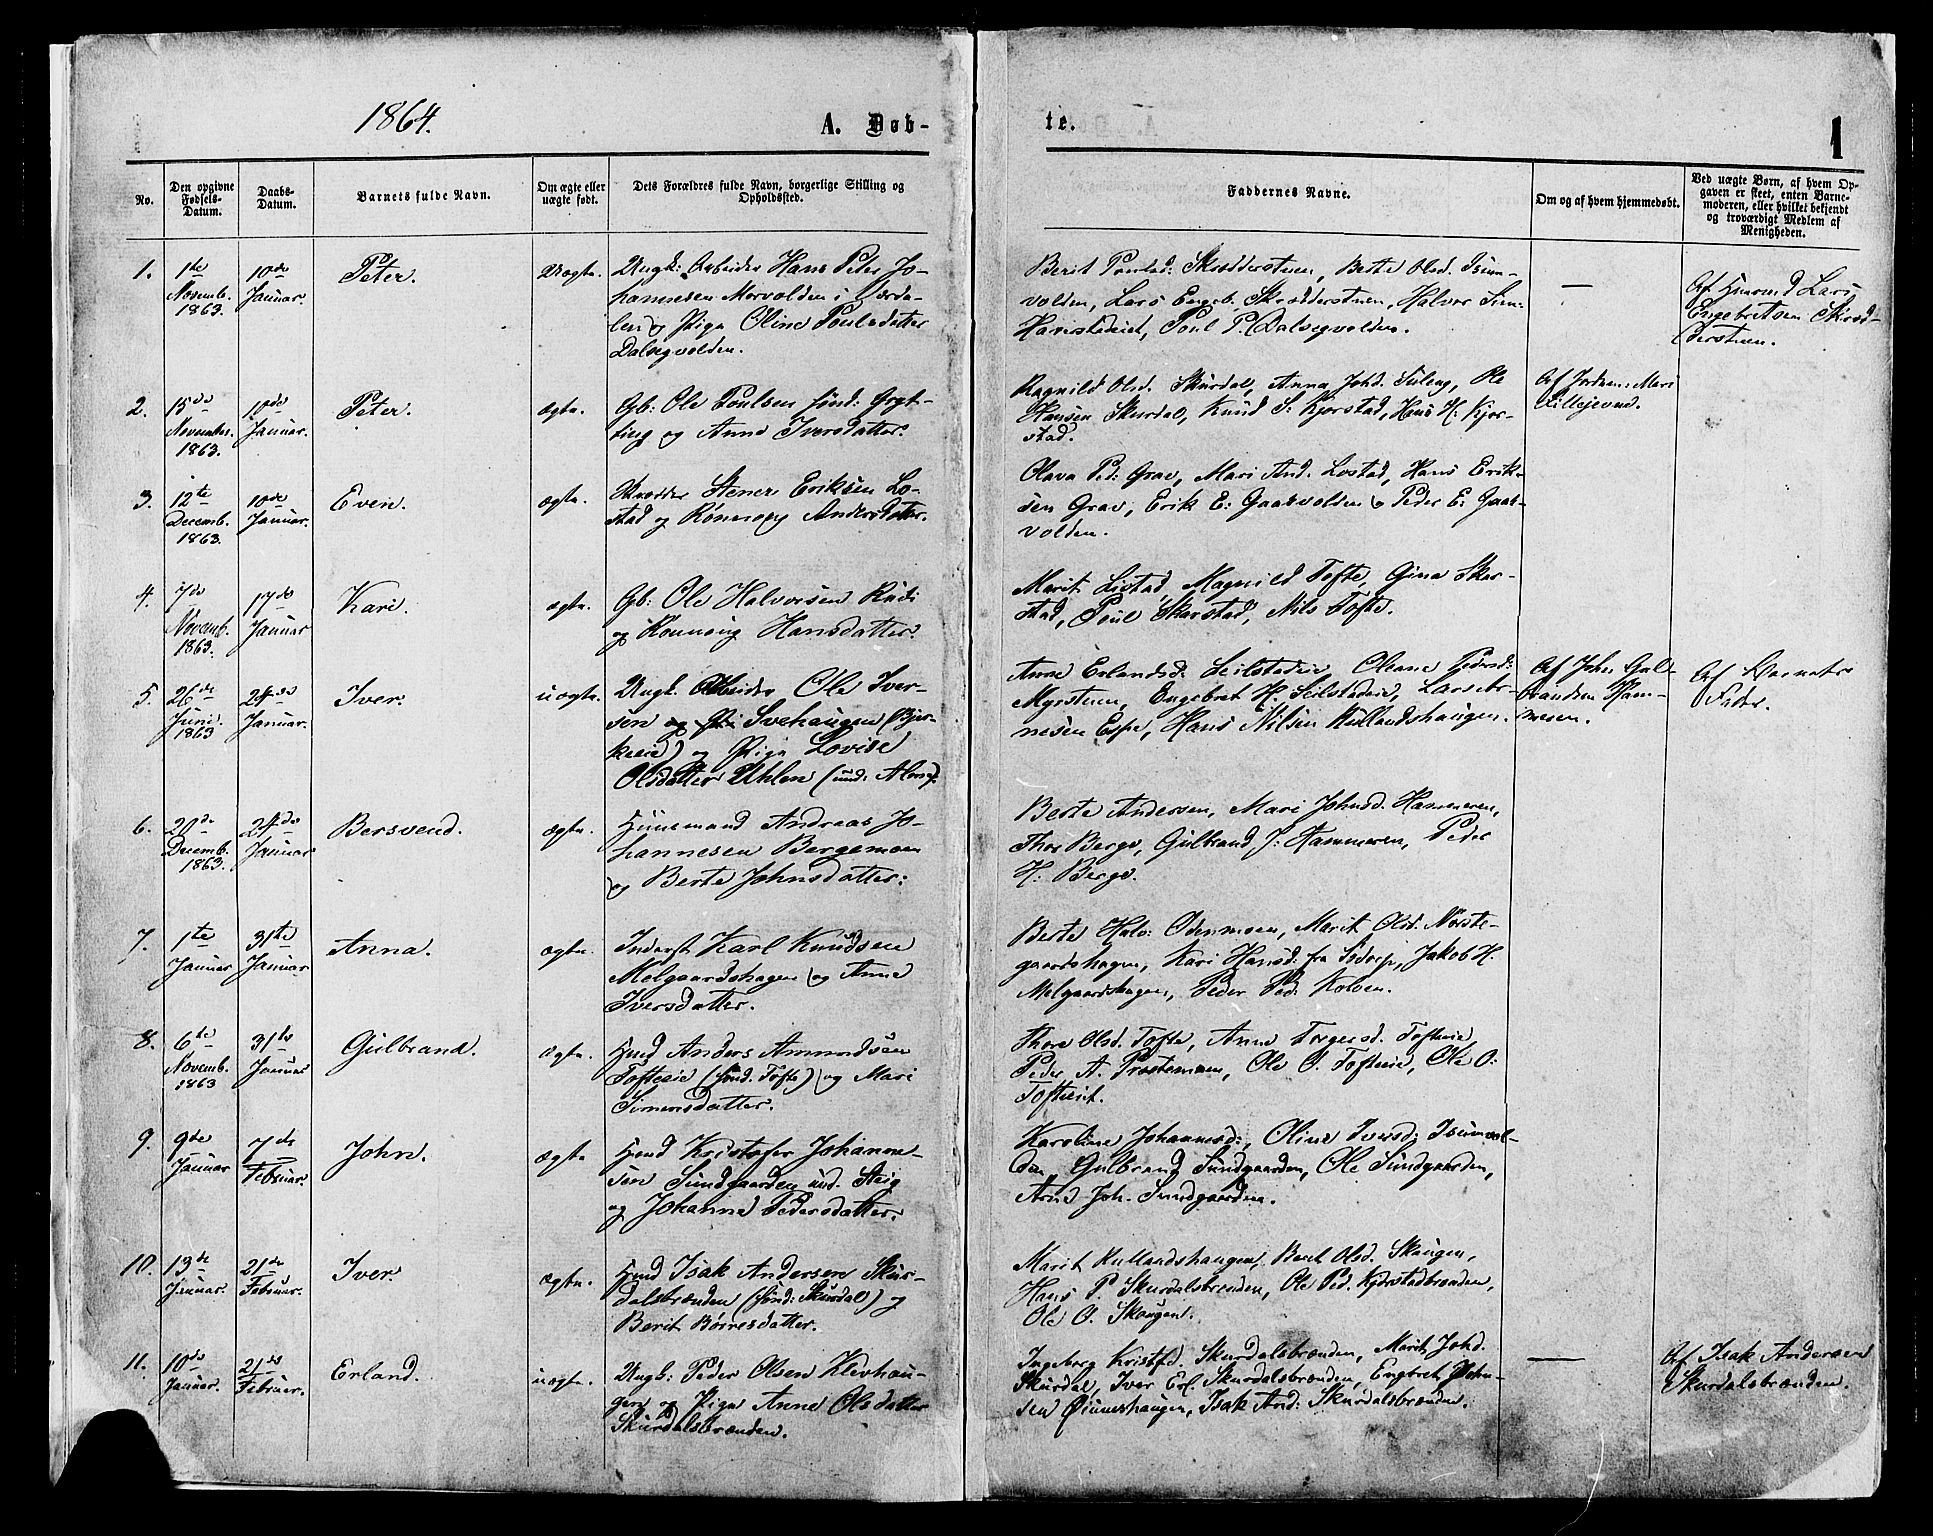 1864.
A. Døb-
te.
1
No.
Den opgivne
Fødsels-
Datum.
Daabs-
Datum.
Barnets fulde Navn.
Om ægte eller
uægte født.
Dets Forældres fulde Navn, borgerlige Stilling og
Opholdssted.
Faddernes Navne.
Om og af hvem hjemmedøbt.
Ved uægte Børn, af hvem Op-
gaven er skeet, enten Barne-
moderen, eller hvilket bekjendt
og troværdigt Medlem af
Menigheden.
1.
1te
Novemb.
1863.
10de
Januar.
Peter.
Uægte.
Ungk: Arbeider Hans Peter Jo-
hannesen Morvolden i Værda-
len og Pige Oline Poulsdatter
Dalsegvolden.
Berit Poulsd: Skrædderstuen, Berte Olsd.
volden, Lars Engeb. Skrædderstuen, Halvor
Poul P. Dalsegvolden.
—
Af Huusmd Lars
Engebretsen Skræd-
derstuen.
2.
15de
November.
1863.
10de
Januar.
Peter.
ægte.
Gb: Ole Poulsen sønd:
og Anne Iversdatter.
Ragnild Olsd. Skurdal, Anna Johd. Ole
Hansen Skurdal, Knud S: Kjorstad, Hans H. Kjor-
stad.
Af Jordem: Mari
Lillejevne.
3.
12te
Decemb.
1863.
10de
Januar.
Even.
ægte.
Skrædder Stener Eriksen Lo-
stad og Rønnaug Andersdatter.
Olava Ped: Grav, Mari And. Lostad, Hans Erik-
sen Grav, Erik E: Gaasvolden o Peder E: Gaas-
volden.
4.
7de
Novemb.
1863.
17de
Januar
Kari.
ægte.
Gb: Ole Halvorsen Rudi
og Rønnaug Hansdatter.
Marit Listad, Magnild Tofte, Gina Skar-
stad, Poul Skarstad, Nils Tofte.
5.
26de
Juni.
1863
24de
Januar.
Iver.
uægte.
Ungk. Arbeider Ole Iver-
sen Svehaugen (Bjer-
keeie) og Pige Lovise
Olsdatter Uhlen
Anne Erlandsd. Seilstadeie Oleane Pedersd:
Myrstuen, Engebret H. Seilstadeie, Lars
nesen Espe, Hans Nilsen Kullandshaugen.
Af John Gul-
brandsen Ham-
meren.
Af Barnets
Fader.
6.
20de
Decemb.
1863.
24de
Januar
Bersvend.
ægte.
Huusmand Andreas Jo-
hannesen Bergemoen
og Berte Johnsdatter.
Berte Andersen, Mari Johnsd. Hammeren,
Thor Berge, Gulbrand J: Hammeren, Peder
H: Berge.
7.
1te
Januar
31te
Januar
Anna.
ægte.
Inderst Karl Knudsen
Melgaardshagen og Anne
Iversdatter.
Berte Halv: Odenmoen, Marit Olsd. Nørste-
gaardshagen, Kari Hansd: fra Jakob H.
Melgaardshagen, Peder Ped: Kolven.
8.
6te
Novemb.
1863
31te
Januar
Gulbrand.
ægte.
Huusmd Anders Amundsen
Tofteeie (sønd. Tofte) og Mari
Simensdatter.
Thore Olsd. Tofte, Anne Torgersd. Tofteeie,
Peder A. Prestemoen, Ole O. Tofteeie, Ole O:
Tofteeie.
9.
9de
Januar
7de
Februar.
John.
ægte
Huusmd Kristofer Johanne-
sen Sundgaarden und. Steig
og Johanne Pedersdatter.
Karoline Johannesd:, Oline Iversd:
den, Gulbrand Sundgaarden, Ole Sundgaarden,
Arne Joh. Sundgaarden.
10.
13de
Januar.
21de
Februar.
Iver.
ægte.
Huusmd Isak Andersen Skur-
dalsbrænden (sønd: Skurdal) og
Berit Børresdatter.
Marit Kullandshaugen, Berit Olsd. Skaugen,
Hans P. Skurdalsbrenden, Ole Ped. Kjørstadbrænden,
Ole O. Skaugen.
11.
10de
Januar.
21de
Februar.
Erland.
uægte.
Ungk: Peder Olsen Klevhau-
gen og Pige Anne Olsdatter
Skurdalsbrænden.
Ingeborg Kristfd. Skurdalsbrænden, Marit Johd.
Skurdal, Iver Erl. Skurdalsbrænden, Engbret John-
sen Isak And: Skurdalsbrænden.
—
Af Isak Andersen
Skurdalsbrænden.